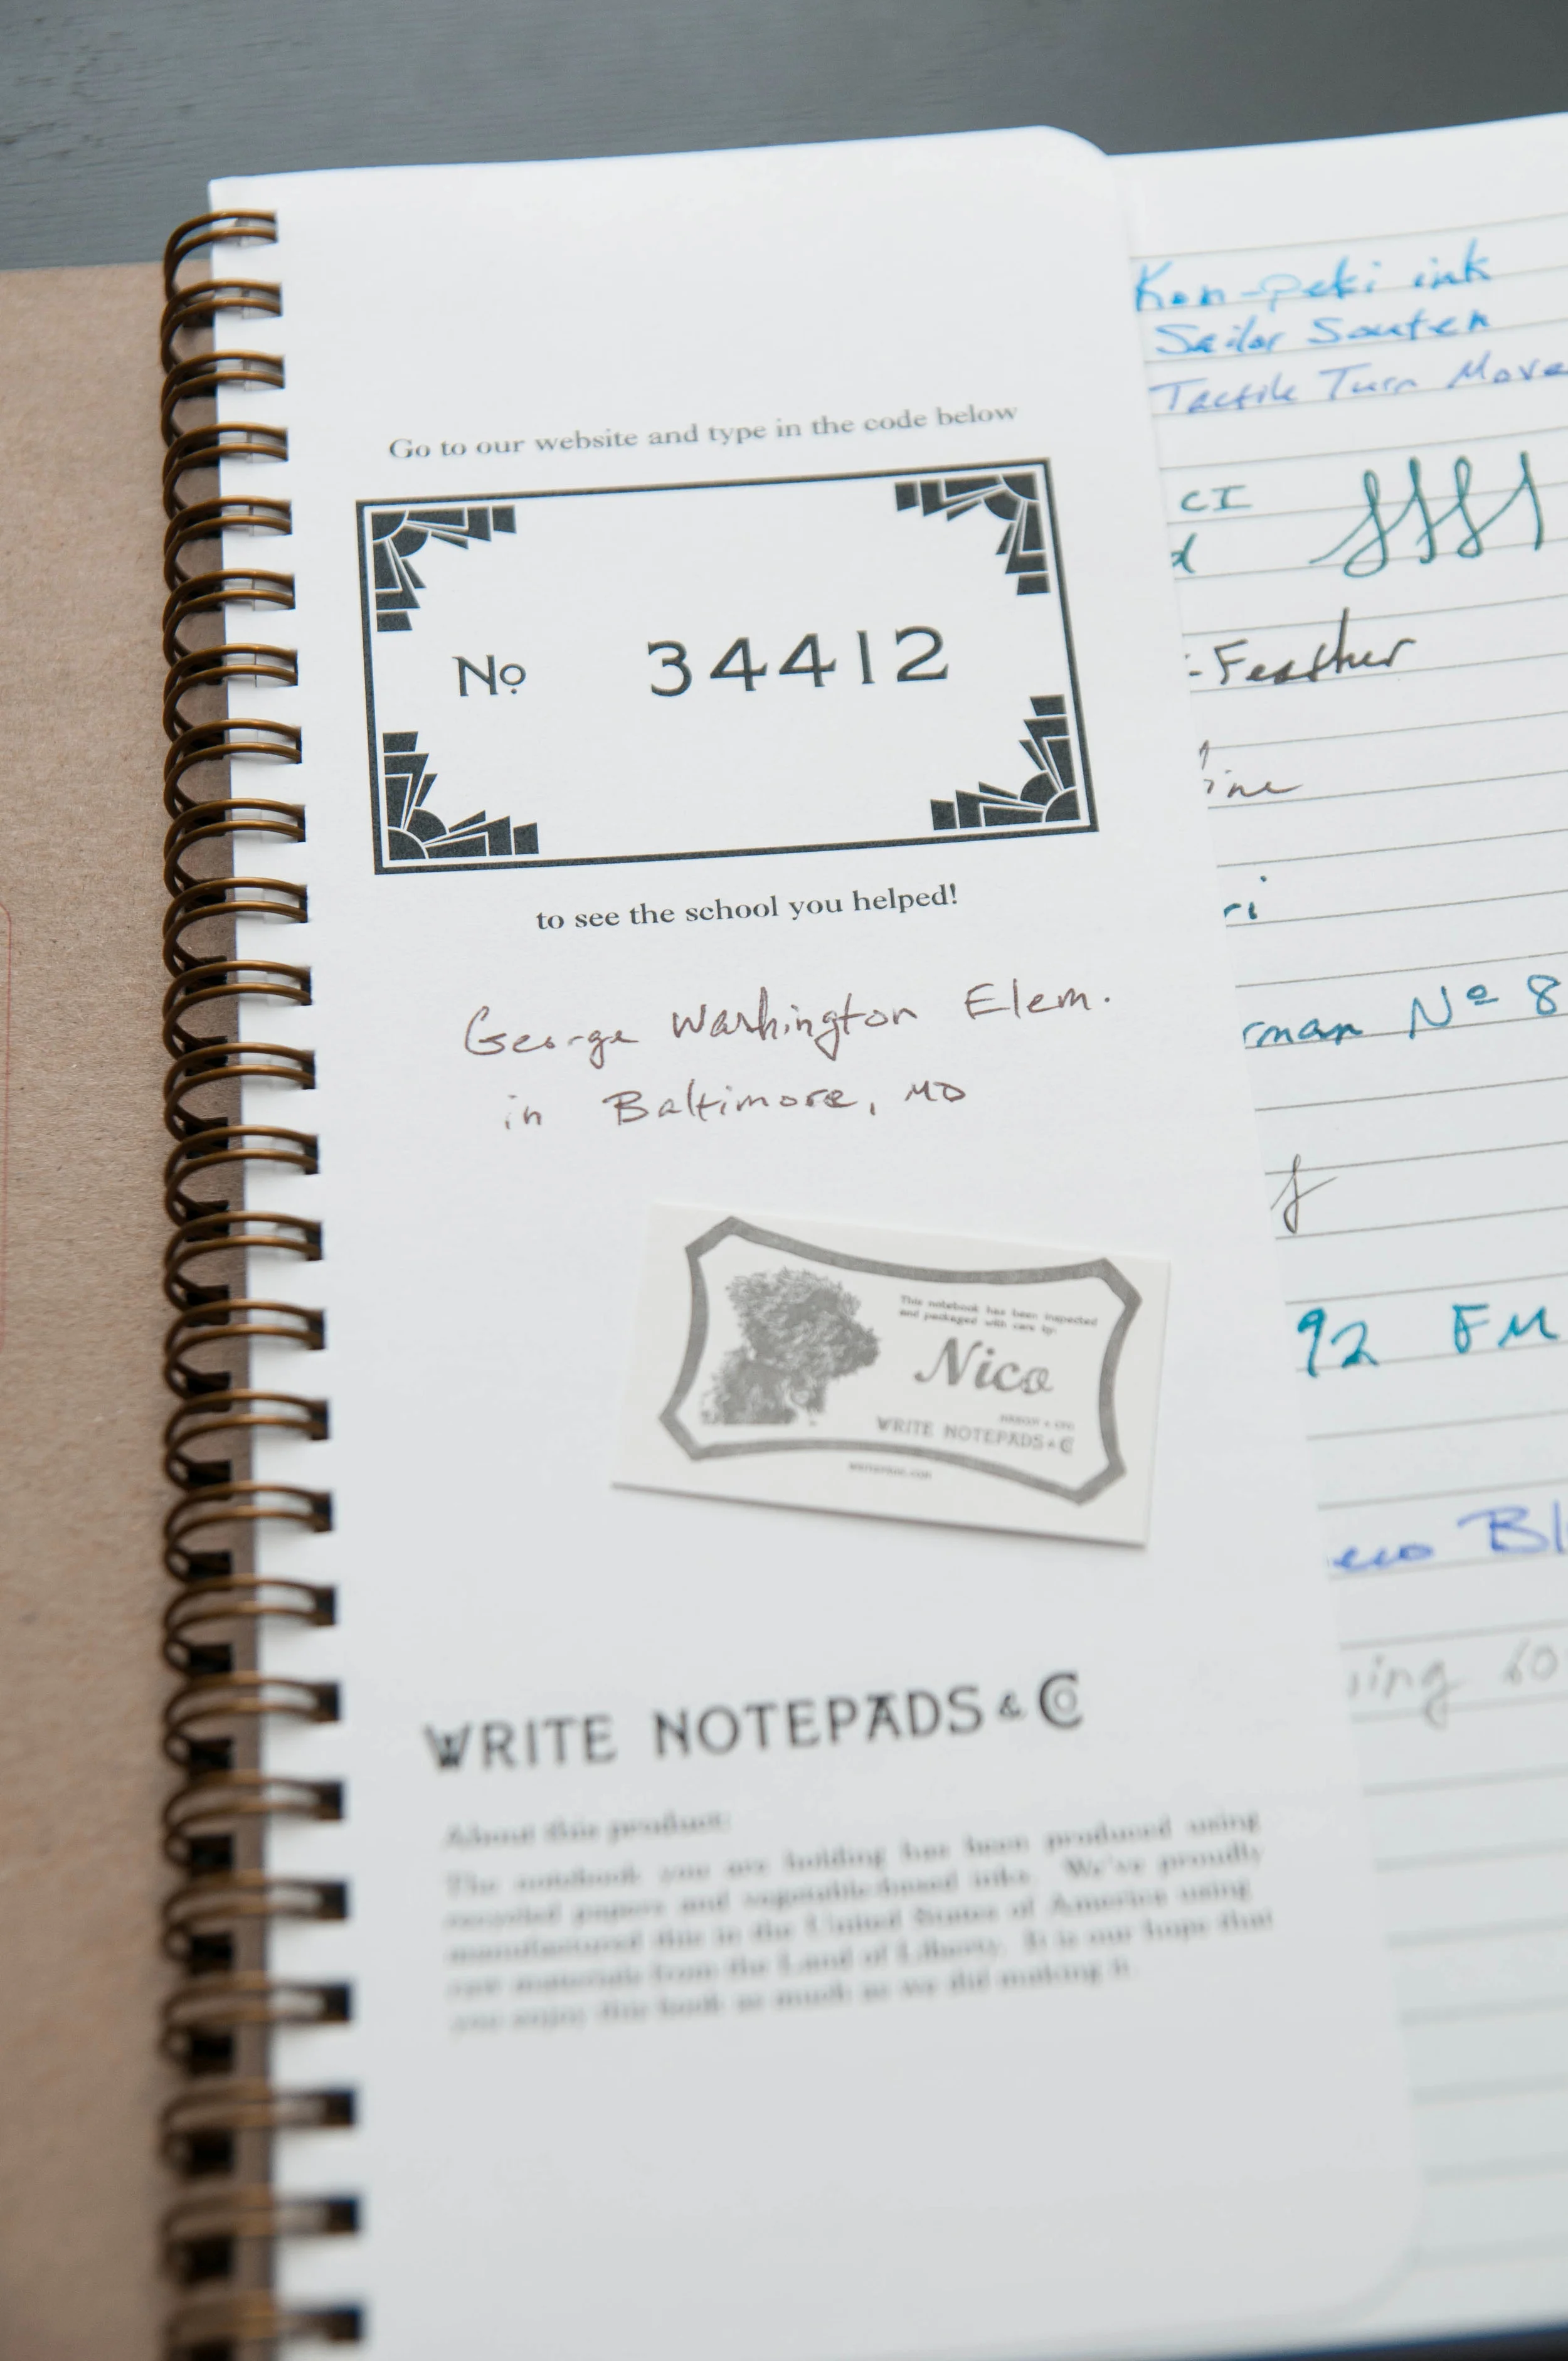 Go to our website and type in the code below
No 34412
to see the school you helped!
George Washington Elem.
in Baltimore, MD
This notebook has been inspected
and packaged with care by:
Nico
WRITE NOTEPADS & CO
WRITE NOTEPADS & CO
About this product:
The notebook you are holding has been produced using
recycled papers and vegetable-based inks. We've proudly
manufactured this in the United States of America using
raw materials from the Land of Liberty. It is our hope that
you enjoy this book as much as we did making it.
Kon-peki ink
Sailor Souten
Tactile Turn Move
CI
d
-Feather
ine
ri
rman Nº 8
f
92 FM
ero Bl
sing 60